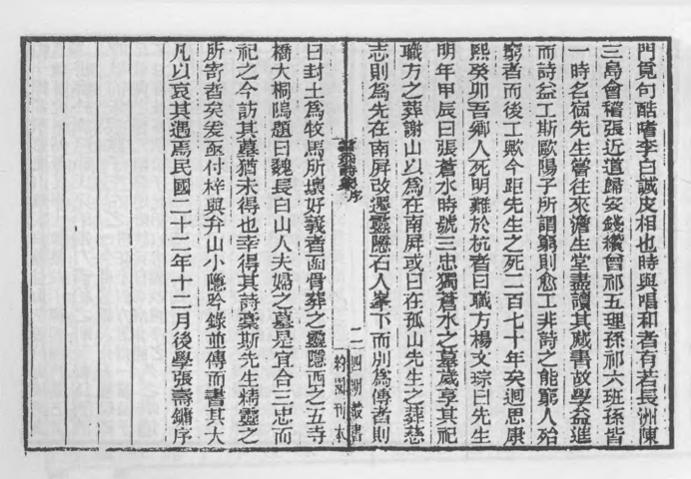 門覓句酷嗜李白誠皮相也時與唱和者有若長洲陳
三島會稽張近道歸安錢纘曾祁五理孫祁六班孫皆
一時名宿先生嘗往來澹生堂盡讀其藏書故學益進
而詩益工斯歐陽子所謂窮則愈工非詩之能窮人殆
窮者而後工歟今距先生之死二百七十年矣迴思康
熙癸卯吾鄉人死明難於杭者曰職方楊文琮曰先生
明年甲辰曰張蒼水時號三忠獨蒼水之墓歲享其祀
職方之葬謝山以為在南屏或曰在孤山先生之葬慈
志則為先在南屏改遷靈隱石人峯下而別為傳者則
序
二
四明叢書
約園刊本
曰封土為牧馬所壞好義者函骨葬之靈隱西之五寺
橋大桐隝題曰魏長白山人夫婦之墓是宜合三忠而
祀之今訪其墓猶未得也幸得其詩槀斯先生精靈之
所寄者矣爰亟付梓與弁山小隱吟錄並傳而書其大
凡以哀其遇焉民國二十二年十二月後學張壽鏞序